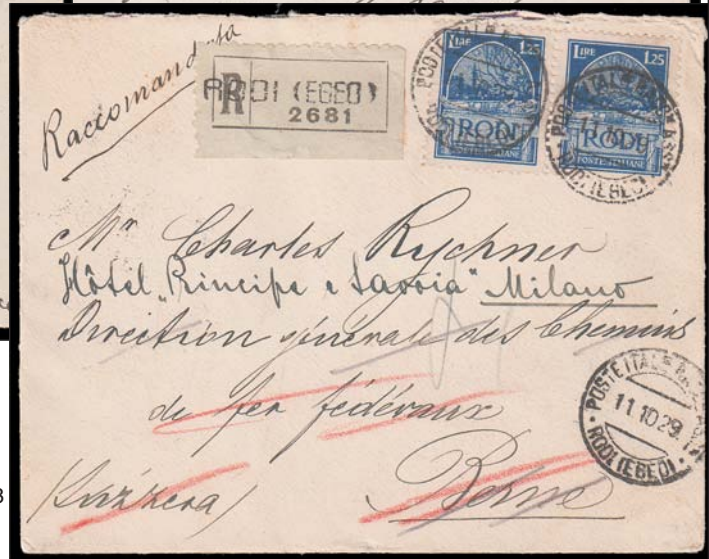 Raccomandata
R
RODI (EGEO)
2681
LIRE 1,25
RODI
POSTE ITALIANE
LIRE 1,25
RODI
POSTE ITALIANE
Mr Charles Rychner
Hôtel „Principe e Savoia" Milano
Direction générale des Chemins
de fer fédéraux
(Svizzera) Berne
POSTE ITALE
11.10.29
RODI (EGEO)